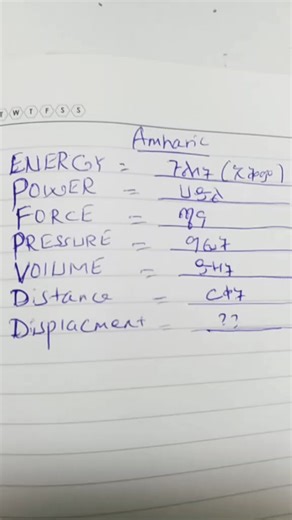 T W T F S S
Amharic
ENERGY =
POWER = ሀይል
FORCE =
PRESSURE = ግፊት
VOLUME = ይዘት
Distance = ርቀት
Displacment = ??